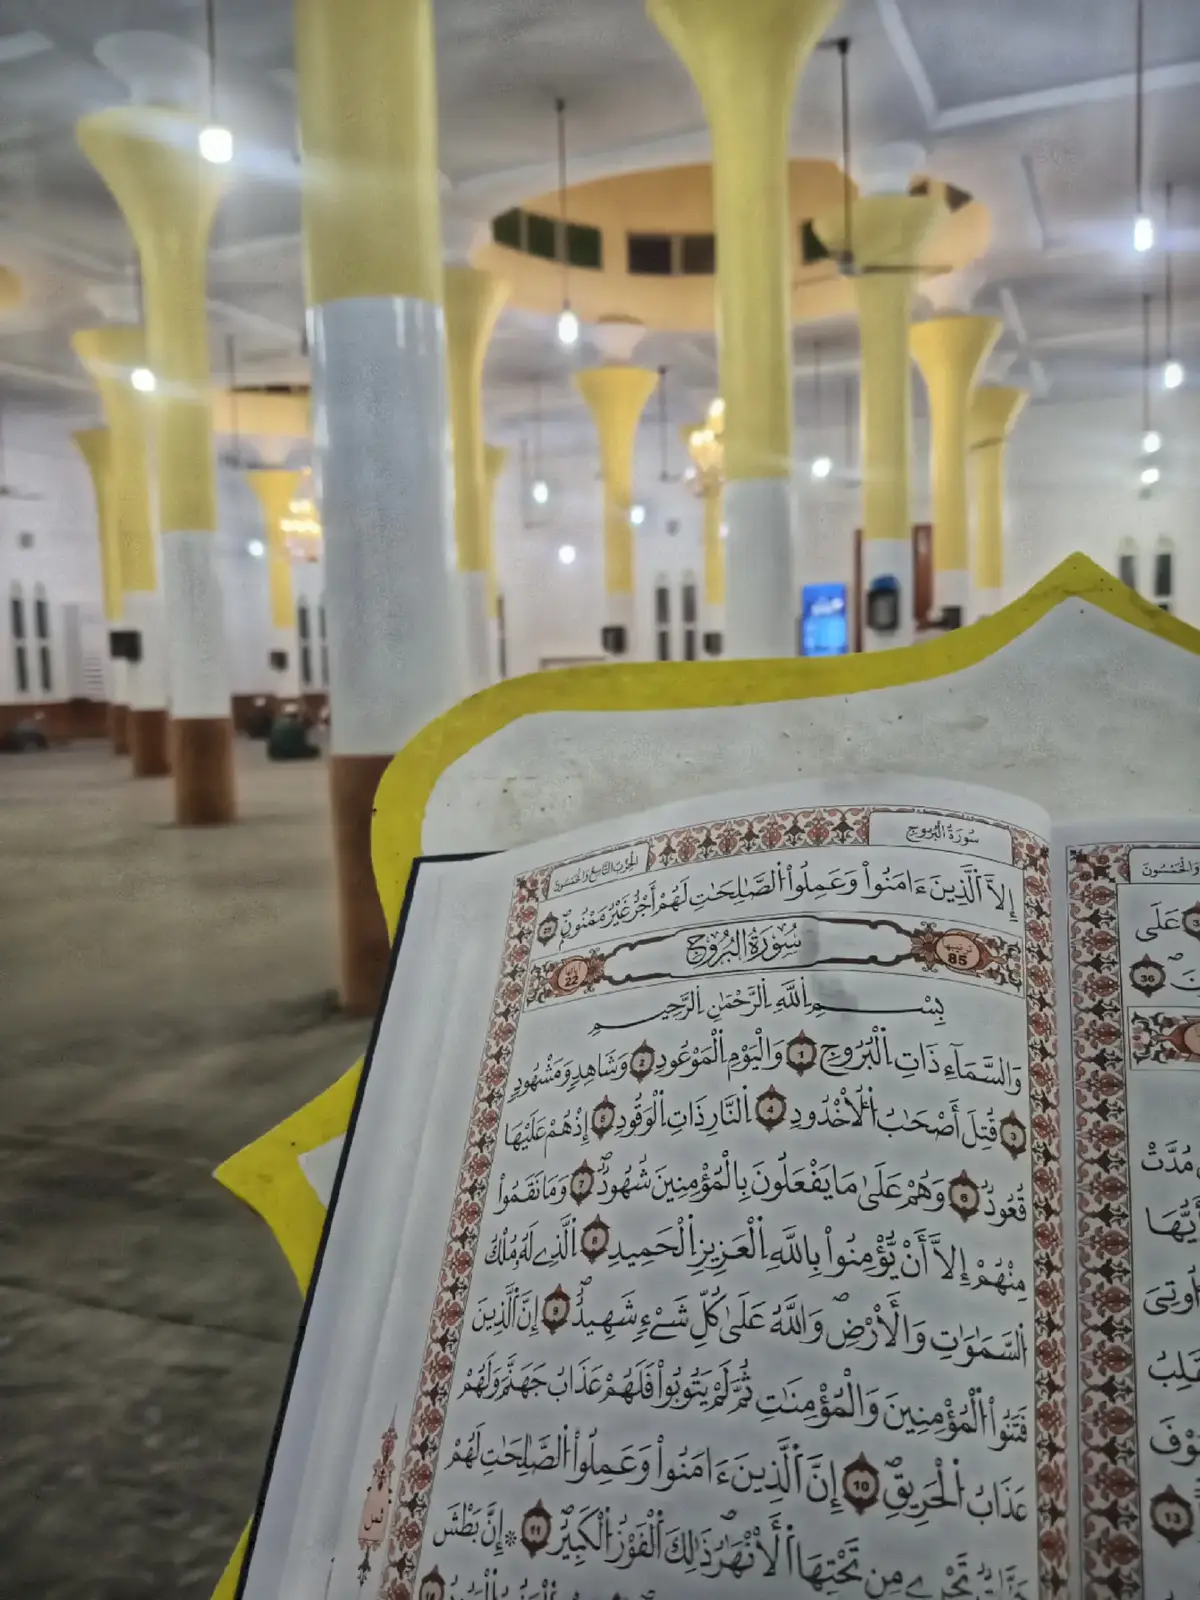 سُورَةُ الْبُرُوجِ
الحِزْبُ التَّاسِعُ وَالخَمْسُونَ
إِلاَّ اَ۬لذِينَ ءَامَنُواْ وَعَمِلُواْ اُ۬لصَّٰلِحَٰتِ لَهُمْ أَجْرٌ غَيْرُ مَمْنُونٖۖ
ترتيبها 85
سُورَةُ البُرُوجِ
آياتها 22
بِسْمِ اِ۬للَّهِ اِ۬لرَّحْمَٰنِ اِ۬لرَّحِيمِ
وَالسَّمَآءِ ذَاتِ اِ۬لْبُرُوجِ 1 وَالْيَوْمِ اِ۬لْمَوْعُودِ 2 وَشَاهِدٖ وَمَشْهُودٖ
3 قُتِلَ أَصْحَٰبُ اُ۬لْأُخْدُودِ 4 اِ۬لنَّارِ ذَاتِ اِ۬لْوَقُودِ 5 إِذْ هُمْ عَلَيْهَا
قُعُودٞ 6 وَهُمْ عَلَىٰ مَا يَفْعَلُونَ بِالْمُؤْمِنِينَ شُهُودٞۖ 7 وَمَا نَقَمُواْ
مِنْهُمْ إِلاَّ أَنْ يُّؤْمِنُواْ بِاللَّهِ اِ۬لْعَزِيزِ اِ۬لْحَمِيدِ 8 اِ۬لذِے لَهُۥ مُلْكُ
اُ۬لسَّمَٰوَٰتِ وَالْأَرْضِۖ وَاللَّهُ عَلَىٰ كُلِّ شَےْءٖ شَهِيدٌۖ 9 إِنَّ اَ۬لذِينَ
فَتَنُواْ اُ۬لْمُؤْمِنِينَ وَالْمُؤْمِنَٰتِ ثُمَّ لَمْ يَتُوبُواْ فَلَهُمْ عَذَابُ جَهَنَّمَ وَلَهُمْ
عَذَابُ اُ۬لْحَرِيقِۖ 10 إِنَّ اَ۬لذِينَ ءَامَنُواْ وَعَمِلُواْ اُ۬لصَّٰلِحَٰتِ لَهُمْ
جَنَّٰتٞ تَجْرِے مِن تَحْتِهَا اَ۬لْأَنْهَٰرُۖ ذَٰلِكَ اَ۬لْفَوْزُ اُ۬لْكَبِيرُۖ 11 ۞ إِنَّ بَطْشَ
ثمن
وَالخَمْسُونَ
عَلَى
36
مُدَّتْ
أَيُّهَا
أُوتِيَ
13